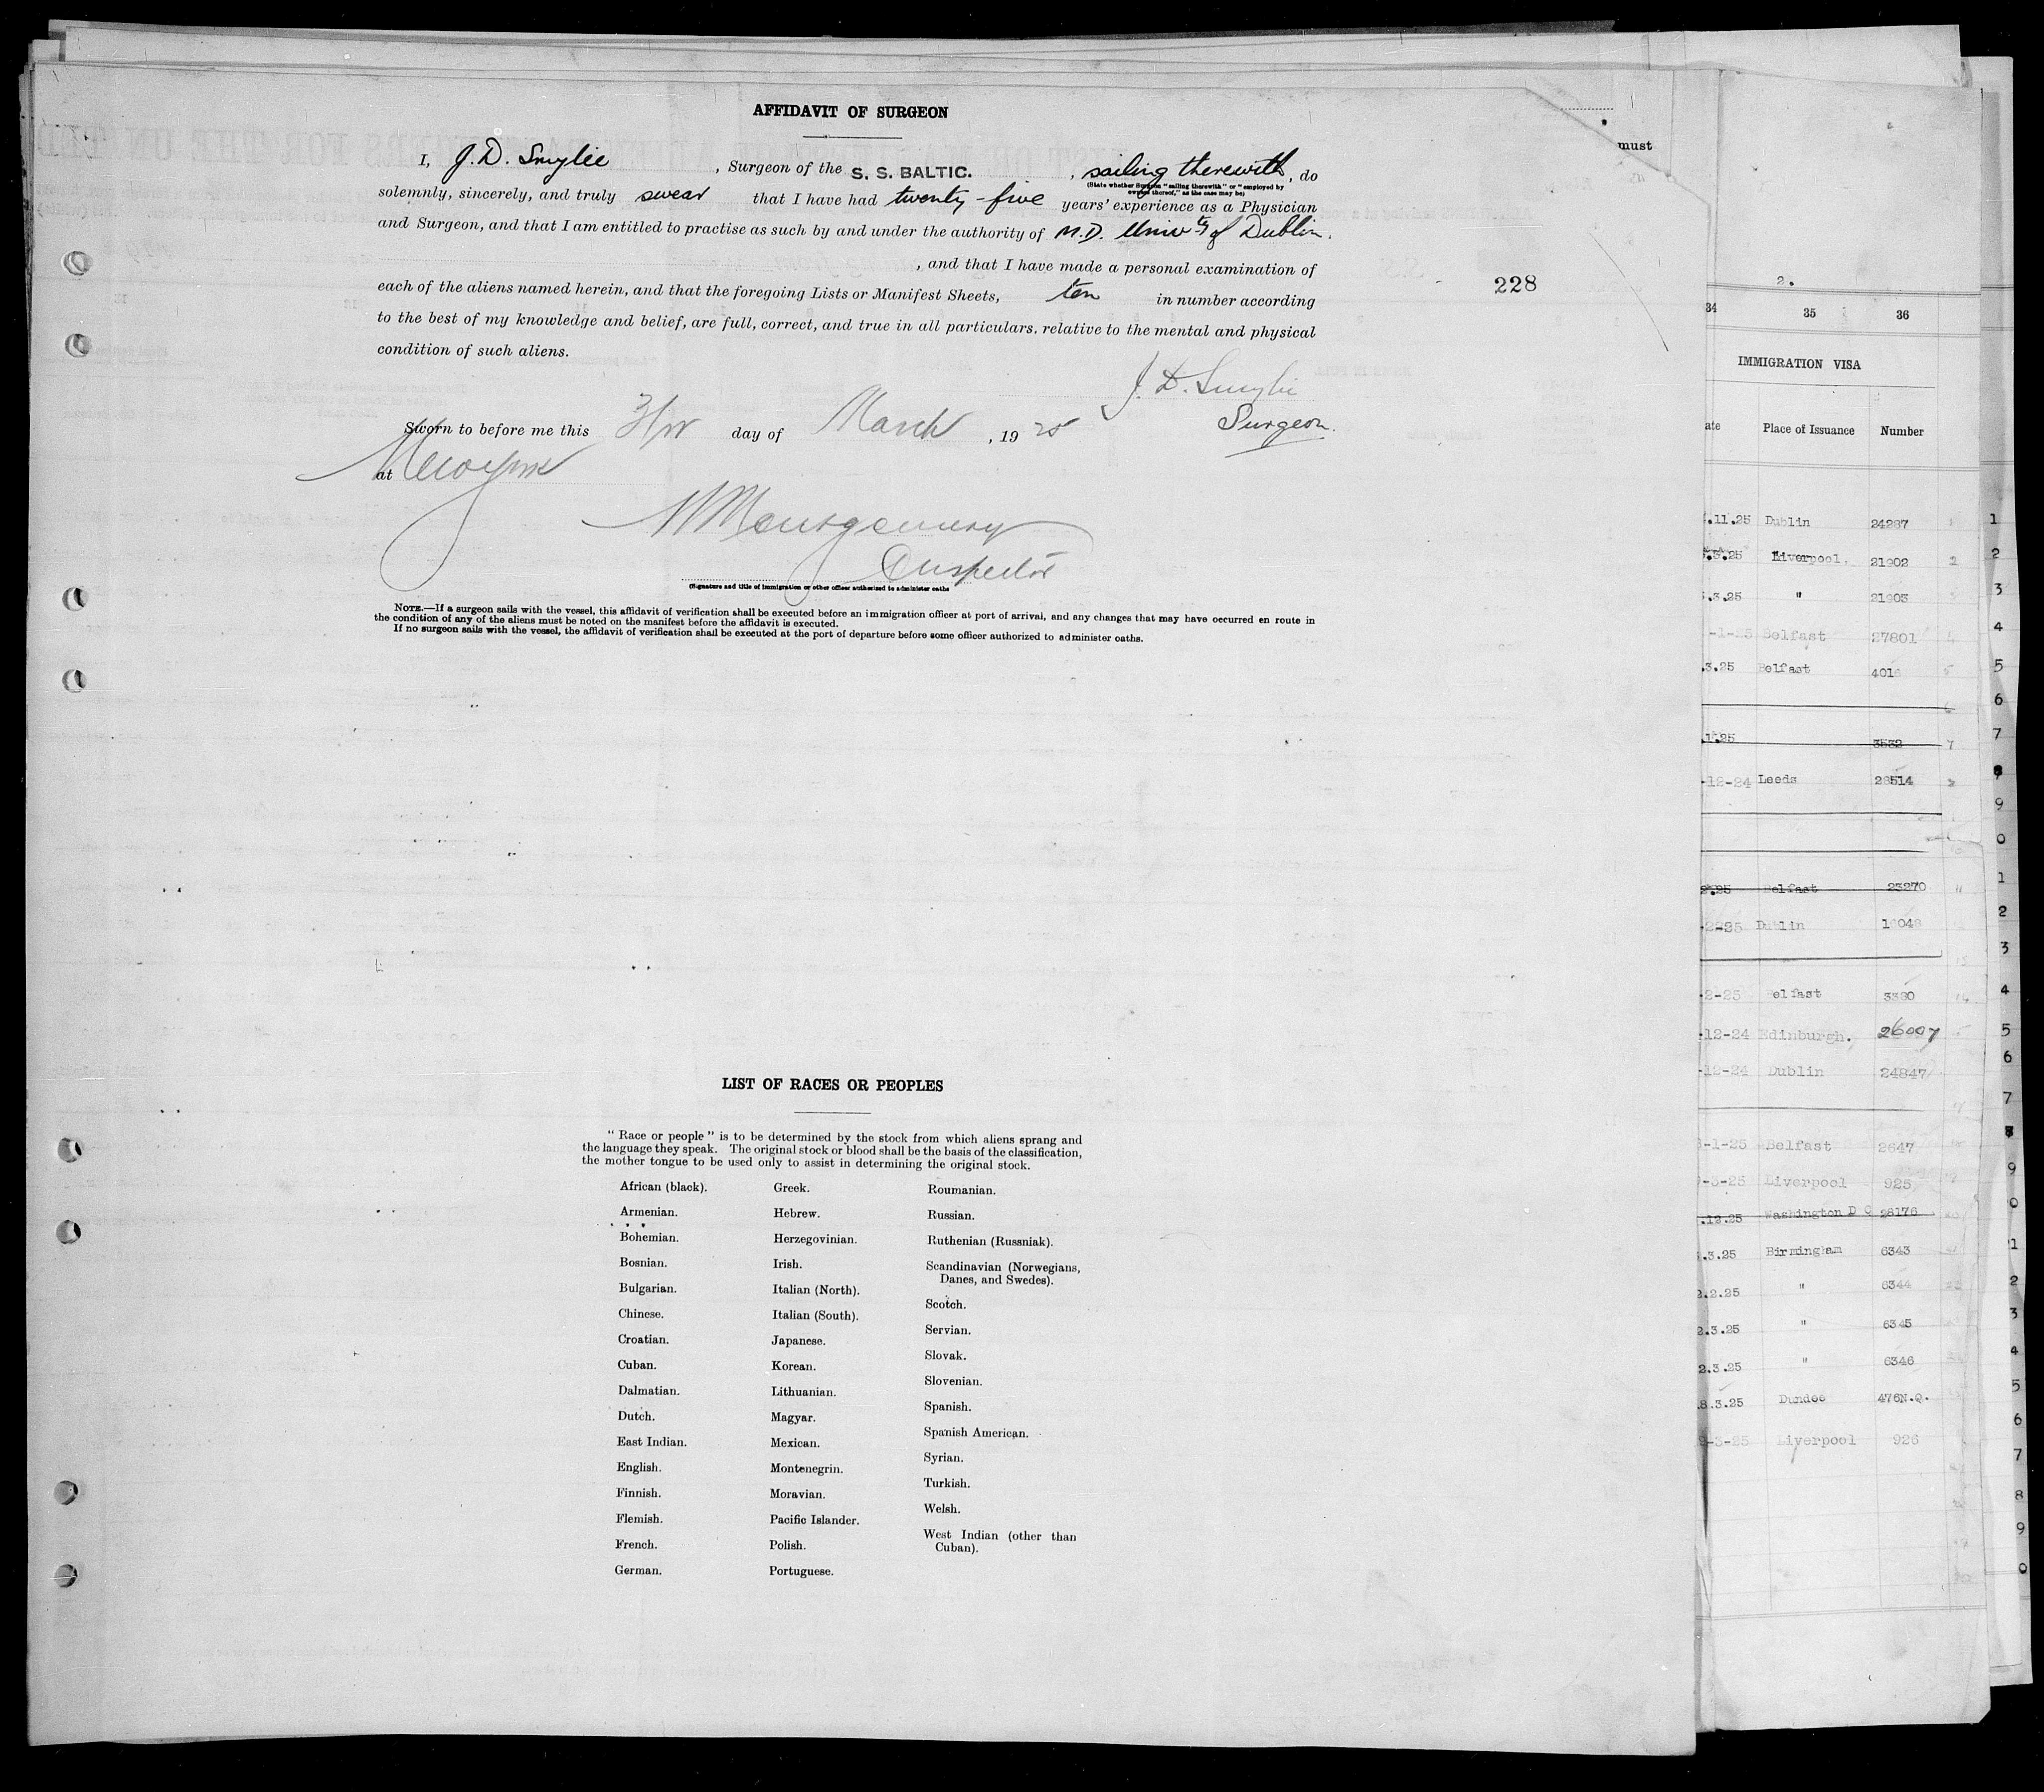 AFFIDAVIT OF SURGEON
I, J. D. Smylie, Surgeon of the S. S. BALTIC., sailing therewith, do
(State whether Surgeon "sailing therewith" or "employed by
owners thereof," as the case may be)
solemnly, sincerely, and truly swear that I have had twenty-five years' experience as a Physician
and Surgeon, and that I am entitled to practise as such by and under the authority of M.D. Univty of Dublin.
, and that I have made a personal examination of
each of the aliens named herein, and that the foregoing Lists or Manifest Sheets, ten in number according
to the best of my knowledge and belief, are full, correct, and true in all particulars. relative to the mental and physical
condition of such aliens.
J. D. Smylie
Surgeon.
Sworn to before me this day of March, 1925
at New York
Montgomery
Inspector
(Signature and title of immigration or other officer authorized to administer oaths
NOTE.—If a surgeon sails with the vessel, this affidavit of verification shall be executed before an immigration officer at port of arrival, and any changes that may have occurred en route in
the condition of any of the aliens must be noted on the manifest before the affidavit is executed.
If no surgeon sails with the vessel, the affidavit of verification shall be executed at the port of departure before some officer authorized to administer oaths.
228
LIST OF RACES OR PEOPLES
"Race or people" is to be determined by the stock from which aliens sprang and
the language they speak. The original stock or blood shall be the basis of the classification,
the mother tongue to be used only to assist in determining the original stock.
African (black).
Armenian.
Bohemian.
Bosnian.
Bulgarian.
Chinese.
Croatian.
Cuban.
Dalmatian.
Dutch.
East Indian.
English.
Finnish.
Flemish.
French.
German.
Greek.
Hebrew.
Herzegovinian.
Irish.
Italian (North).
Italian (South).
Japanese.
Korean.
Lithuanian.
Magyar.
Mexican.
Montenegrin.
Moravian.
Pacific Islander.
Polish.
Portuguese.
Roumanian.
Russian.
Ruthenian (Russniak).
Scandinavian (Norwegians,
Danes, and Swedes).
Scotch.
Servian.
Slovak.
Slovenian.
Spanish.
Spanish American.
Syrian.
Turkish.
Welsh.
West Indian (other than
Cuban).
must
2.
34 35 36
IMMIGRATION VISA
ate Place of Issuance Number
.11.25 Dublin 24287 1
.25 Liverpool. 21902 2
.3.25 " 21903 3
-1-25 Belfast 27801 4
.3.25 Belfast 401 5
6
1.25 3532 7
-12-24 Leeds 28514 8
9
0
.25 Belfast 23270 1
-25 Dublin 2
3
-2-25 Belfast 3380 4
-12-24 Edinburgh. 26007 5
-12-24 Dublin 24847 6
7
-1-25 Belfast 2647 8
-3-25 Liverpool 925 9
.12.25 Washington D C 28176 0
.3.25 Birmingham 6343 1
2.2.25 " 6344 2
2.3.25 " 6345 3
2.3.25 " 6346 4
8.3.25 Dundee 476N.Q. 5
6
-3-25 Liverpool 926 7
8
9
0